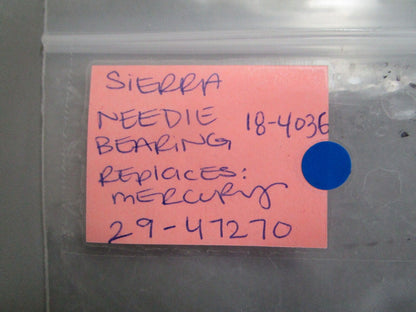 SIERRA
NEEDLE 18-4036
BEARING
REPLACES:
MERCURY
29-47270